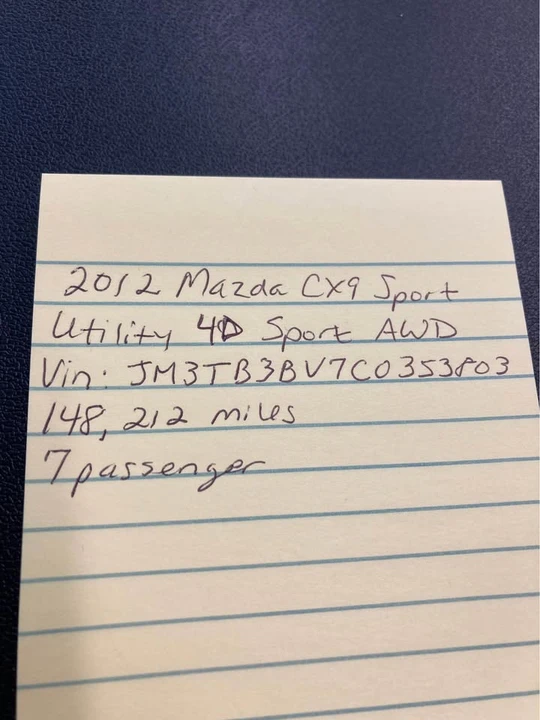 2012 Mazda CX9 Sport
Utility 4D Sport AWD
Vin: JM3TB3BV7C0353803
148,212 miles
7passenger